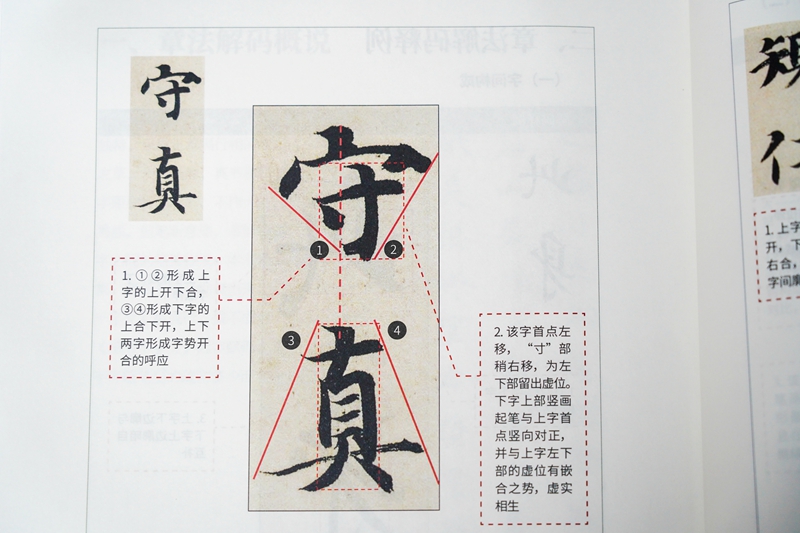 守
真
守
真
①
②
③
④
1. ①②形成上
字的上开下合，
③④形成下字的
上合下开，上下
两字形成字势开
合的呼应
2. 该字首点左
移，“寸”部
稍右移，为左
下部留出虚位。
下字上部竖画
起笔与上字首
点竖向对正，
并与上字左下
部的虚位有嵌
合之势，虚实
相生
1. 上字
开，下
右合，
字间